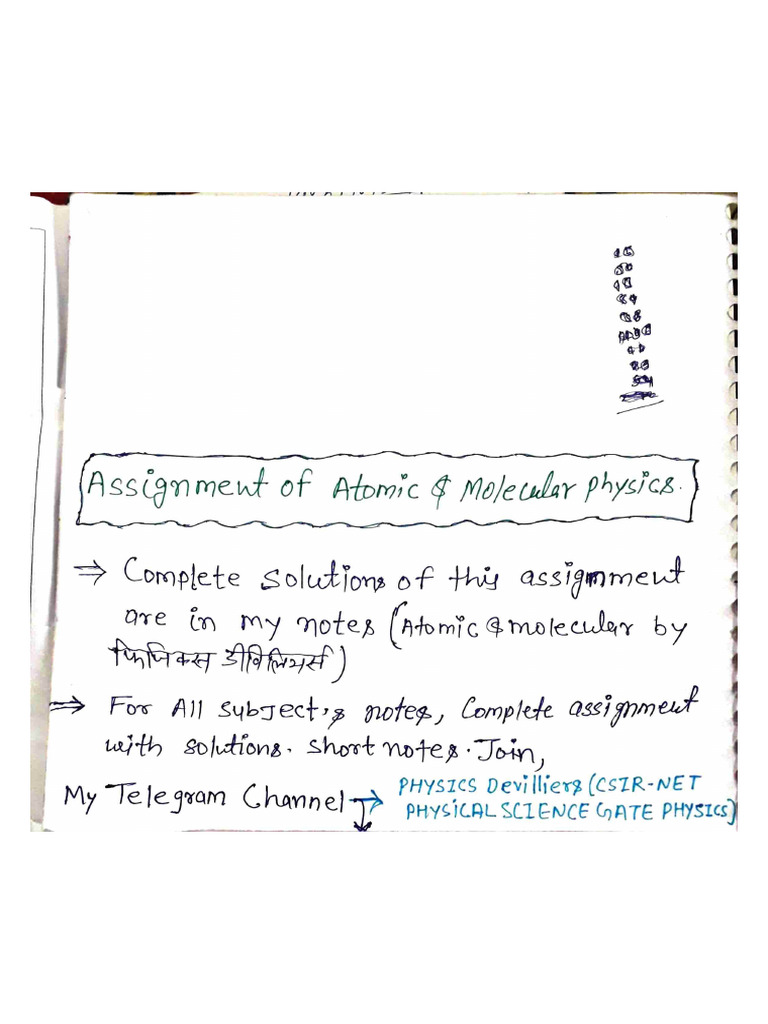 Assignment of Atomic & Molecular Physics.
⇒ Complete solutions of this assignment
are in my notes (Atomic & molecular by
फिजिक्स डीविलियर्स)
⇒ For All subject's notes, Complete assignment
with solutions. short notes. Join,
My Telegram Channel → PHYSICS Devilliers (CSIR-NET
PHYSICAL SCIENCE GATE PHYSICS)